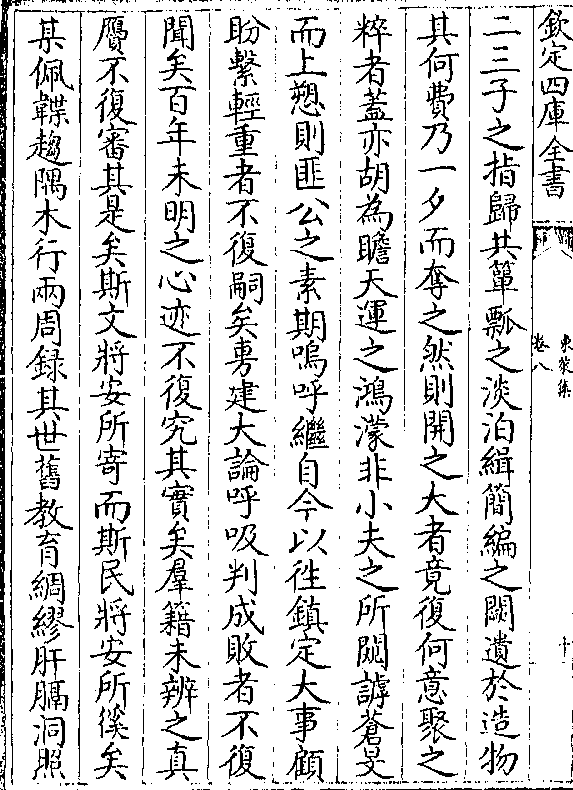 欽定四庫全書
東萊集
卷八
十
二三子之指歸共簞瓢之淡泊緝簡編之闕遺於造物
其何費乃一夕而奪之然則開之大者竟復何意聚之
粹者蓋亦胡為瞻天運之鴻濛非小夫之所闚謼蒼旻
而上愬則匪公之素期嗚呼繼自今以徃鎮定大事顧
盼繫輕重者不復嗣矣專建大論呼吸判成敗者不復
聞矣百年未明之心迹不復究其實矣羣籍未辨之真
贋不復審其是矣斯文將安所寄而斯民將安所徯矣
某佩韘趨隅木行兩周録其世舊教育綢繆肝膈洞照